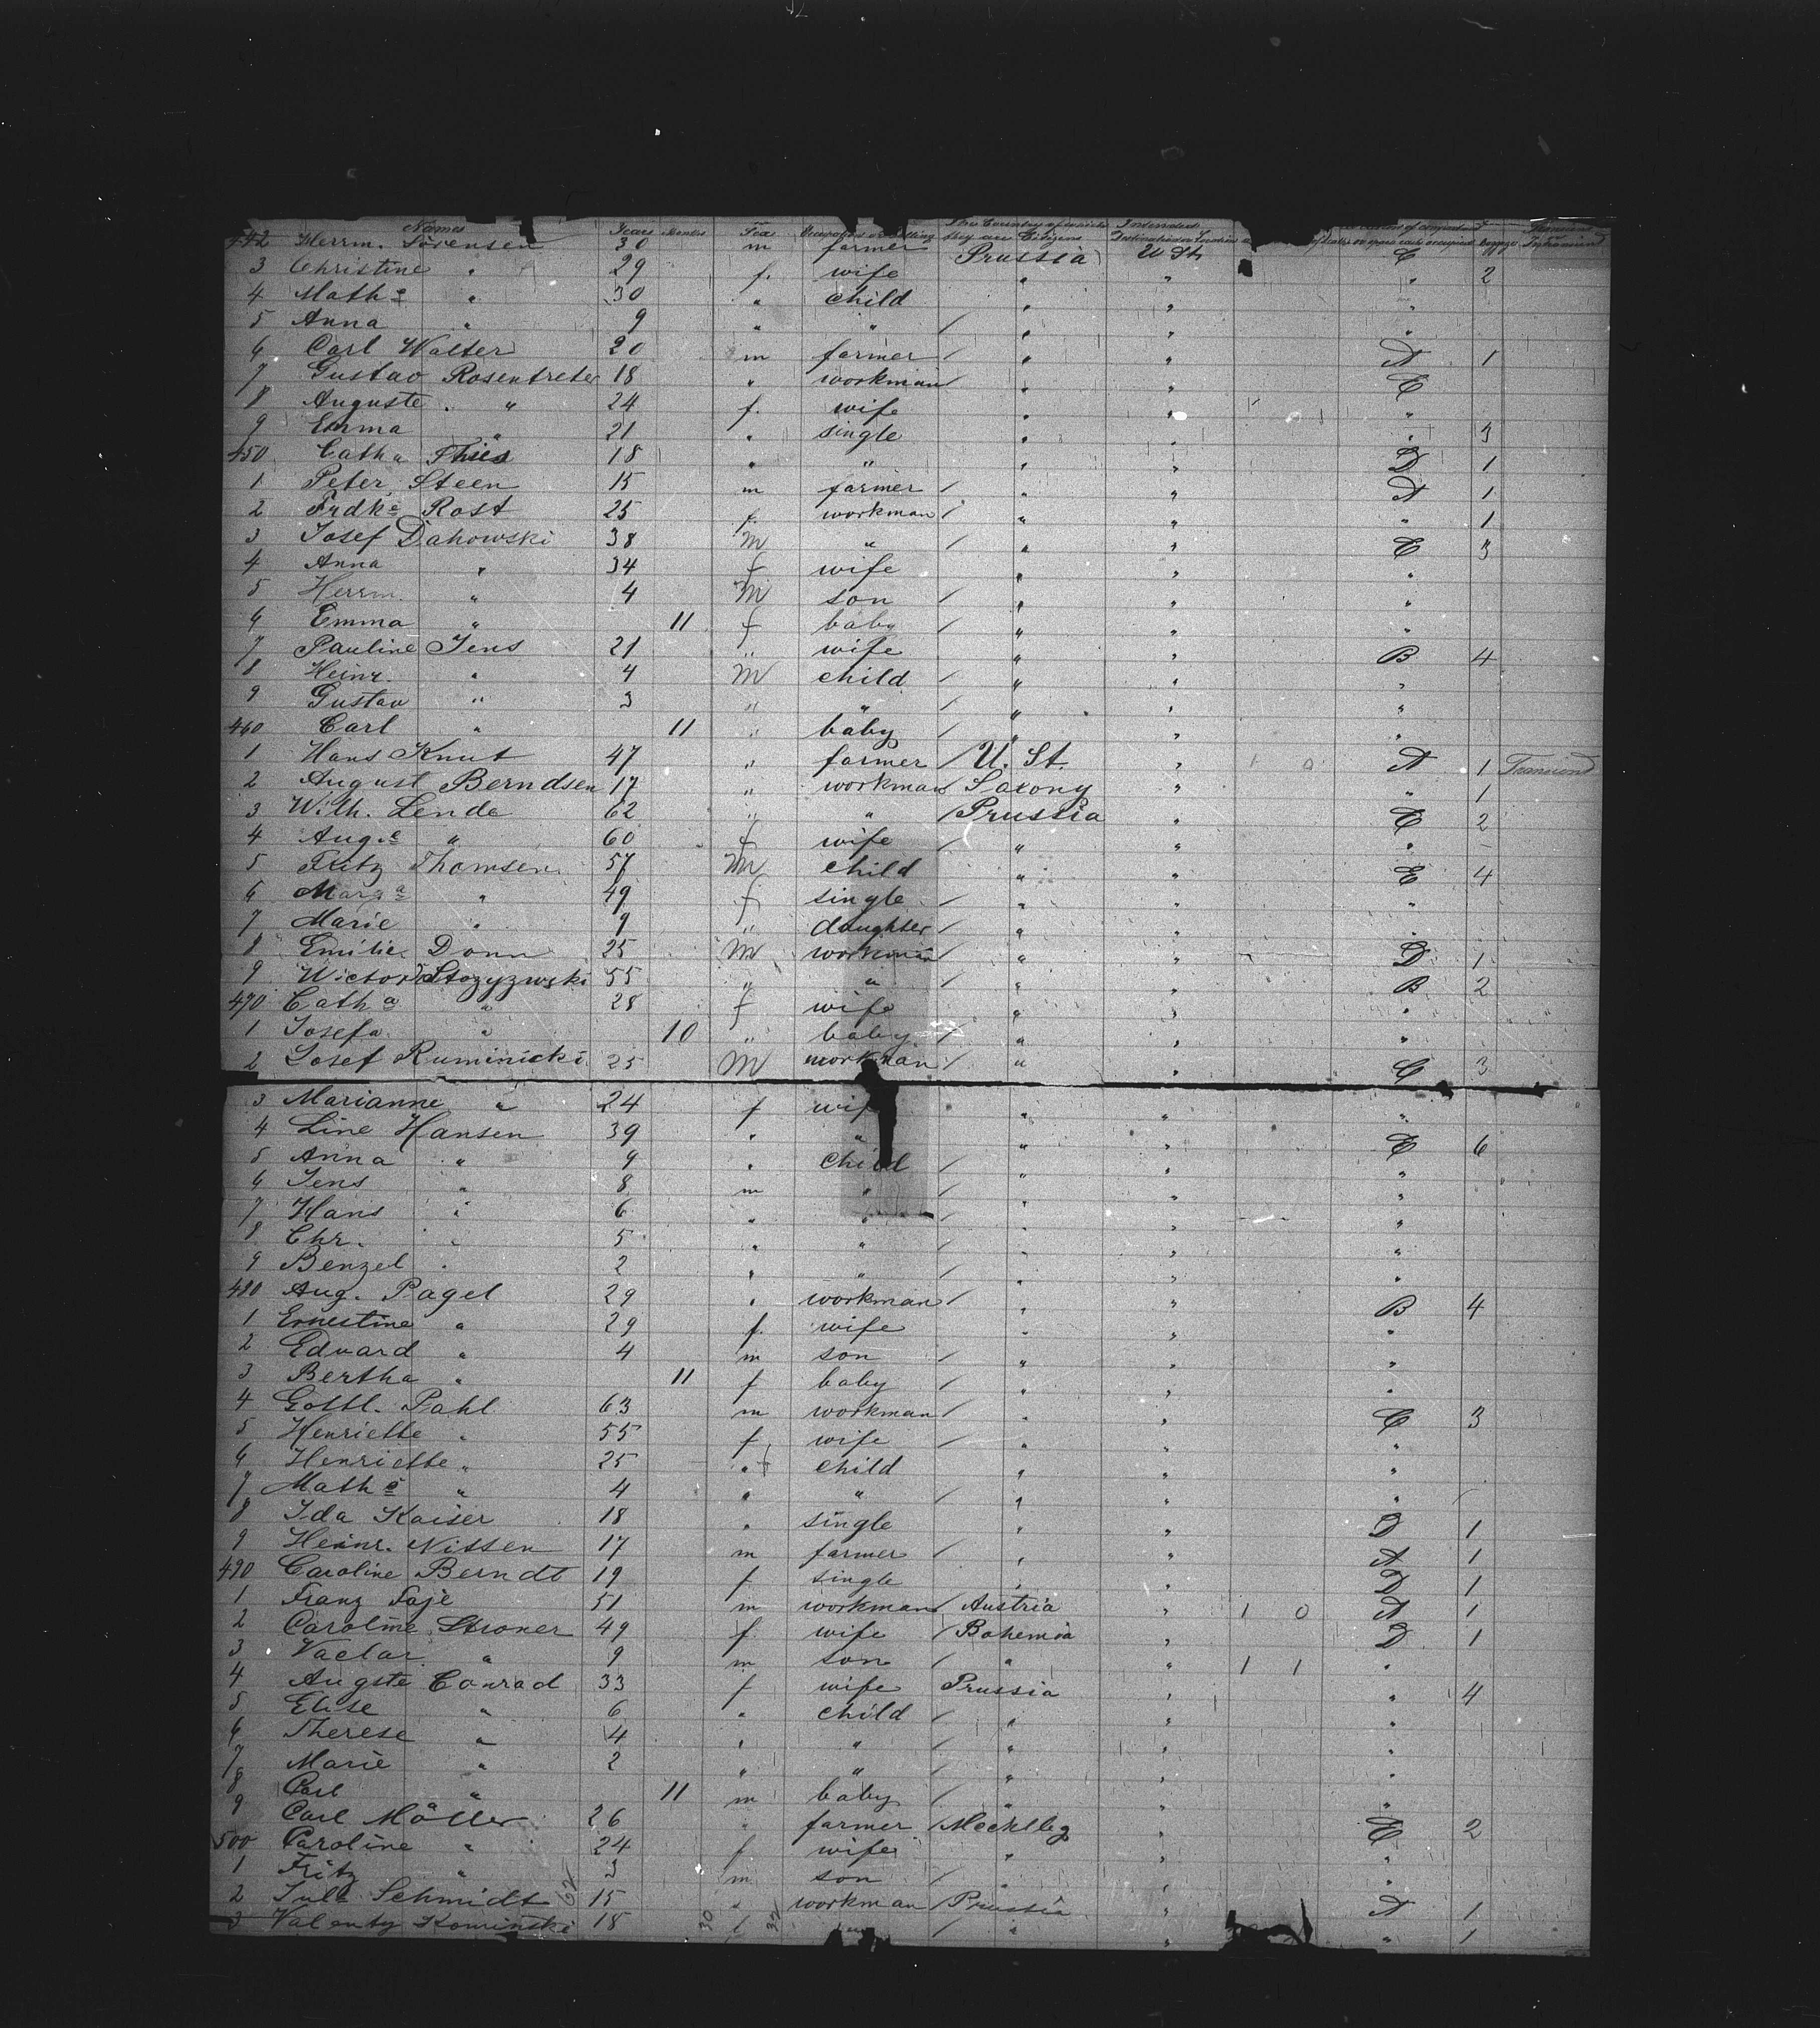 Names Years Months Sex Occupation or Calling The Country of which they are Citizens Intended Destination or Location
442 Herrm. Sörensen 30 m farmer Prussia U St. C
3 Christine " 29 f. wife " " " 2
4 Mathe " 30 " child " " "
5 Anna " 9 " " / " " "
6 Carl Walter 20 m farmer / " " A 1
7 Gustav Rosentreter 18 " workman / " " C
8 Auguste " 24 f. wife " " "
9 Emma " 21 " single " " " 3
450 Catha Thies 18 " " " " D 1
1 Peter Steen 15 m farmer / " " A 1
2 Frdke Rost 25 f. workman / " " " 1
3 Josef Dahowski 38 M " / " " C 3
4 Anna " 34 f wife " " "
5 Herrm. " 4 M son / " " "
6 Emma " 11 f baby / " " "
7 Pauline Jens 21 " wife " " B 4
8 Heinr. " 4 M child / " " "
9 Gustav " 3 " " / " " "
460 Carl " 11 " baby / " " "
1 Hans Knut 47 " farmer / U. St. " A 1
2 August Berndsen 17 " workman / Saxony " " 1
3 Wilh. Lende 62 " " / Prussia " C 2
4 Auge " 60 f wife / " " "
5 Fritz Thomsen 57 M child " " C 4
6 Marga " 49 f single / " " "
7 Marie " 9 " daughter / " " "
8 Emilie Donn 25 M workman / " " D 1
9 Wictor Stozyzwski 55 " " / " " B 2
470 Catha " 28 f wife " " "
1 Josefa " 10 " baby / " " "
2 Josef Ruminicki 25 M workman / " " C 3
3 Marianne " 24 f wife " " "
4 Line Hansen 39 " " " " C 6
5 Anna " 9 " child / " " "
6 Jens " 8 m " / " " "
7 Hans " 6 " " / " " "
8 Chr. " 5 " " / " " "
9 Benzel " 2 " " / " " "
480 Aug. Pagel 29 " workman / " " B 4
1 Ernestine " 29 f. wife " " "
2 Eduard " 4 m son / " " "
3 Bertha " 11 f baby / " " "
4 Gottl. Pahl 63 m workman / " " C 3
5 Henriette " 55 f wife / " " "
6 Henriette " 25 " child " " "
7 Mathe " 4 " " / " " "
8 Ida Kaiser 18 " single " " D 1
9 Heinr. Nissen 17 m farmer / " " A 1
490 Caroline Berndt 19 f single " " D 1
1 Franz Faje 51 m workman / Austria " 1 0 A 1
2 Caroline Stroner 49 f wife / Bohemia " D 1
3 Vaclav " 9 m son / " " 1 1 "
4 Augste Conrad 33 f wife Prussia " " 4
5 Elise " 6 " child / " " "
6 Therese " 4 " " / " " "
7 Marie " 2 " " / " " "
8 Carl " 11 m baby / " " "
9 Carl Möller 26 " farmer / Mecklbg " C 2
500 Caroline " 24 f wife " " "
1 Fritz " 3 m son / " " "
2 Juls Schmidt 15 " workman / Prussia " A 1
3 Valenty Kominski 18 / " " " 1
62 30 32